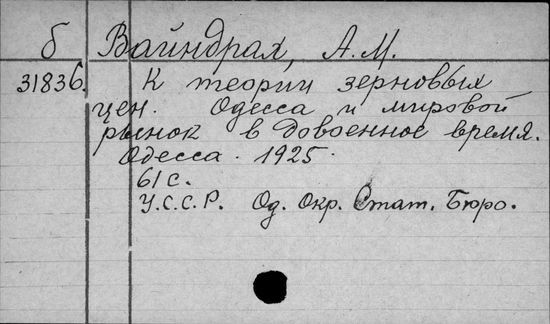 б Вайндрах, А.М.
31836. К теории зерновых
цен. Одесса и мировой
рынок в довоенное время.
Одесса. 1925.
61 с.
У.С.С.Р. Од. Окр. Стат. Бюро.